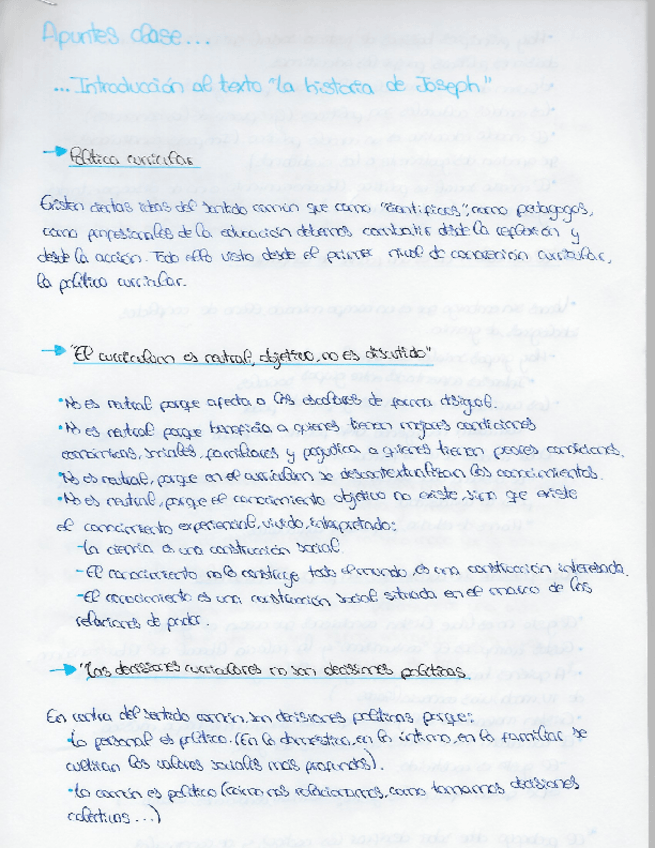 Apuntes clase...
... Introducción al texto "la historia de Joseph"
→ Política curricular
Existen ciertas ideas del sentido común que como "científicos", como pedagogos,
como profesionales de la educación debemos combatir desde la reflexión y
desde la acción. Todo ello visto desde el primer nivel de concreción curricular,
la política curricular.
→ "El curriculum es neutral, objetivo, no es discutido"
• No es neutral porque afecta a los escolares de forma desigual.
• No es neutral porque beneficia a quienes tienen mejores condiciones
económicas, sociales, familiares y perjudica a quienes tienen peores condiciones.
• No es neutral, porque en el curriculum se descontextualizan los conocimientos.
• No es neutral, porque el conocimiento objetivo no existe, sino que existe
el conocimiento experiencial, vivido, interpretado:
- La ciencia es una construcción social.
- El conocimiento no lo construye todo el mundo, es una construcción interesada.
- El conocimiento es una construcción social situada en el marco de las
relaciones de poder.
→ "Las decisiones curriculares no son decisiones políticas.
En contra del sentido común, son decisiones políticas porque:
• Lo personal es político. (En lo doméstico, en lo íntimo, en lo familiar se
cultivan los valores sociales más profundos).
• Lo común es político (cómo nos relacionamos, como tomamos decisiones
colectivas...)